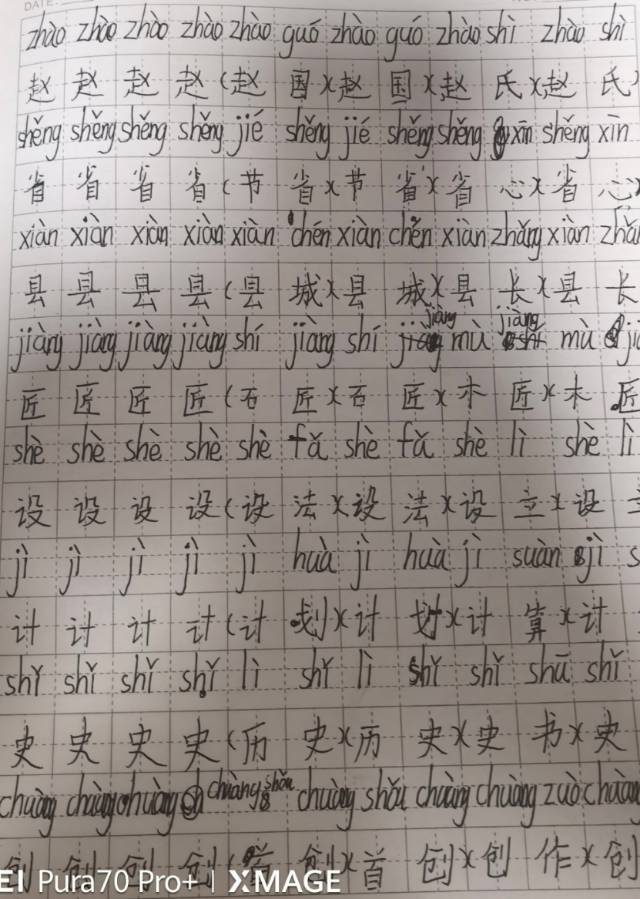 DATE
zhào zhào zhào zhào zhào guó zhào guó zhào shì zhào shì
赵 赵 赵 赵(赵 国)(赵 国)(赵 氏)(赵 氏)
shěng shěng shěng shěng jié shěng jié shěng shěng xīn shěng xìn
省 省 省 省(节 省)(节 省)(省 心)(省 心)
xiàn xiàn xiàn xiàn xiàn chén xiàn chěn xiàn zhǎng xiàn
县 县 县 县(县 城)(县 城)(县 长)(县 长
jiàng jiàng
jiàng jiàng jiàng jiàng shí jiàng shí mù mù
匠 匠 匠 匠(石 匠)(石 匠)(木 匠)(木 匠
shè shè shè shè shè fǎ shè fǎ shè lì shè lì
设 设 设 设(设 法)(设 法)(设 立)(设
jì jì jì jì jì huà jì huà jì suàn jì s
计 计 计 计(计 划)(计 划)(计 算)(计
shǐ shǐ shǐ shǐ lì shǐ lì shǐ shǐ shū shǐ
史 史 史 史(历 史)(历 史)(史 书)(史
chuàng chuàng chuàng chuàng shǒu chuàng shǒu chuàng chuàng zuò chuàng
创 创 创 创(首 创)(首 创)(创 作)(创
EI Pura70 Pro+ | XMAGE